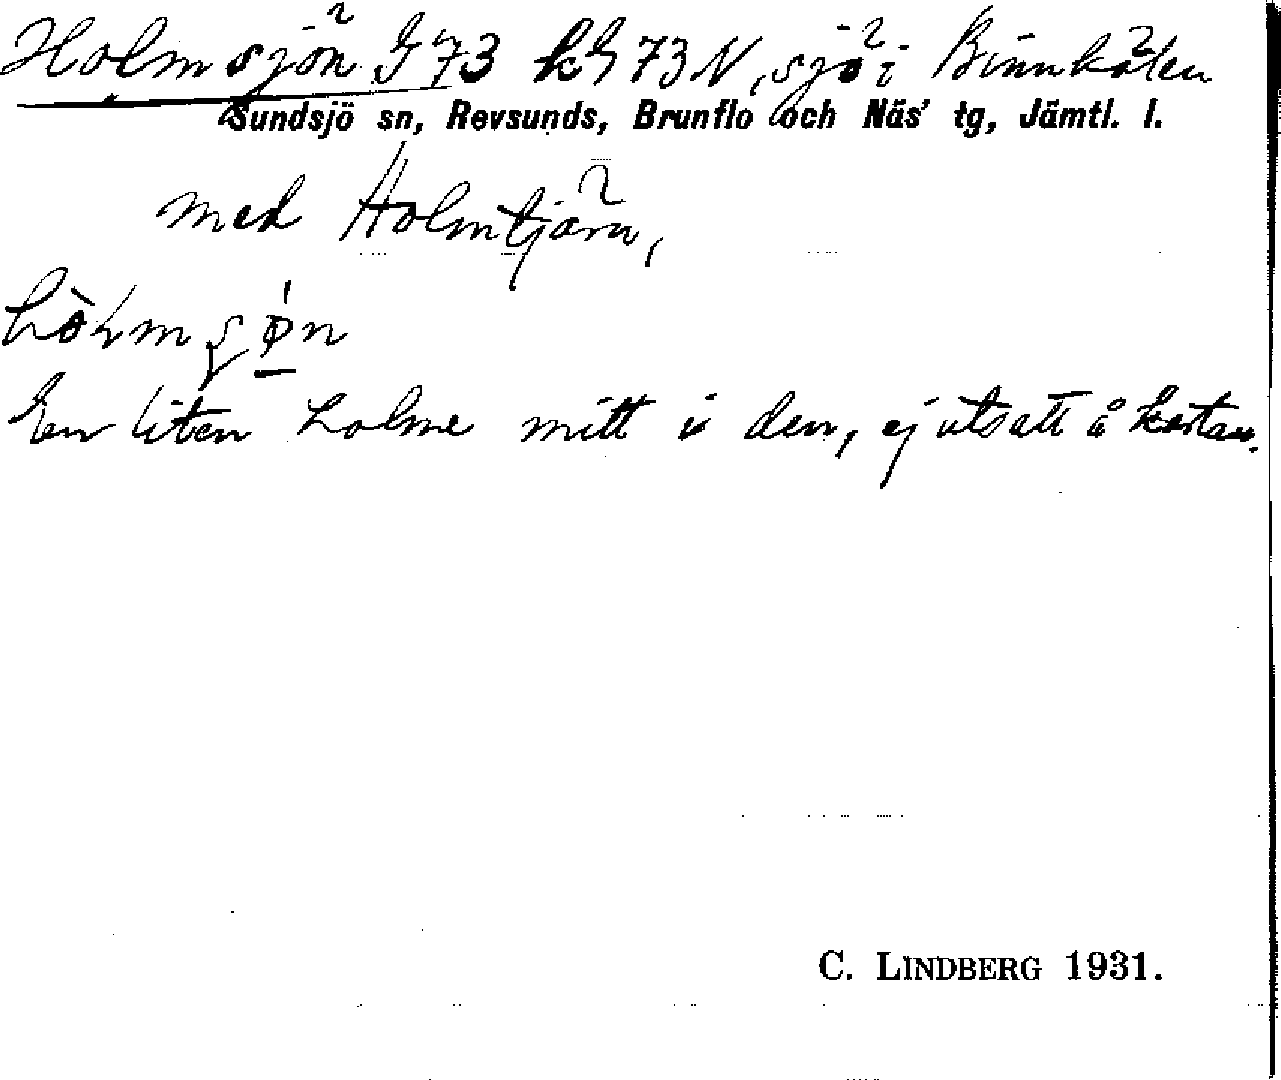 Holmsjön G 73 kG 73 N, sjö i Binnkölen
Sundsjö sn, Revsunds, Brunflo och Näs' tg, Jämtl. l.
med Holmtjärn,
En liten holme mitt i den, ej utsatt å kartan.
C. LINDBERG 1931.